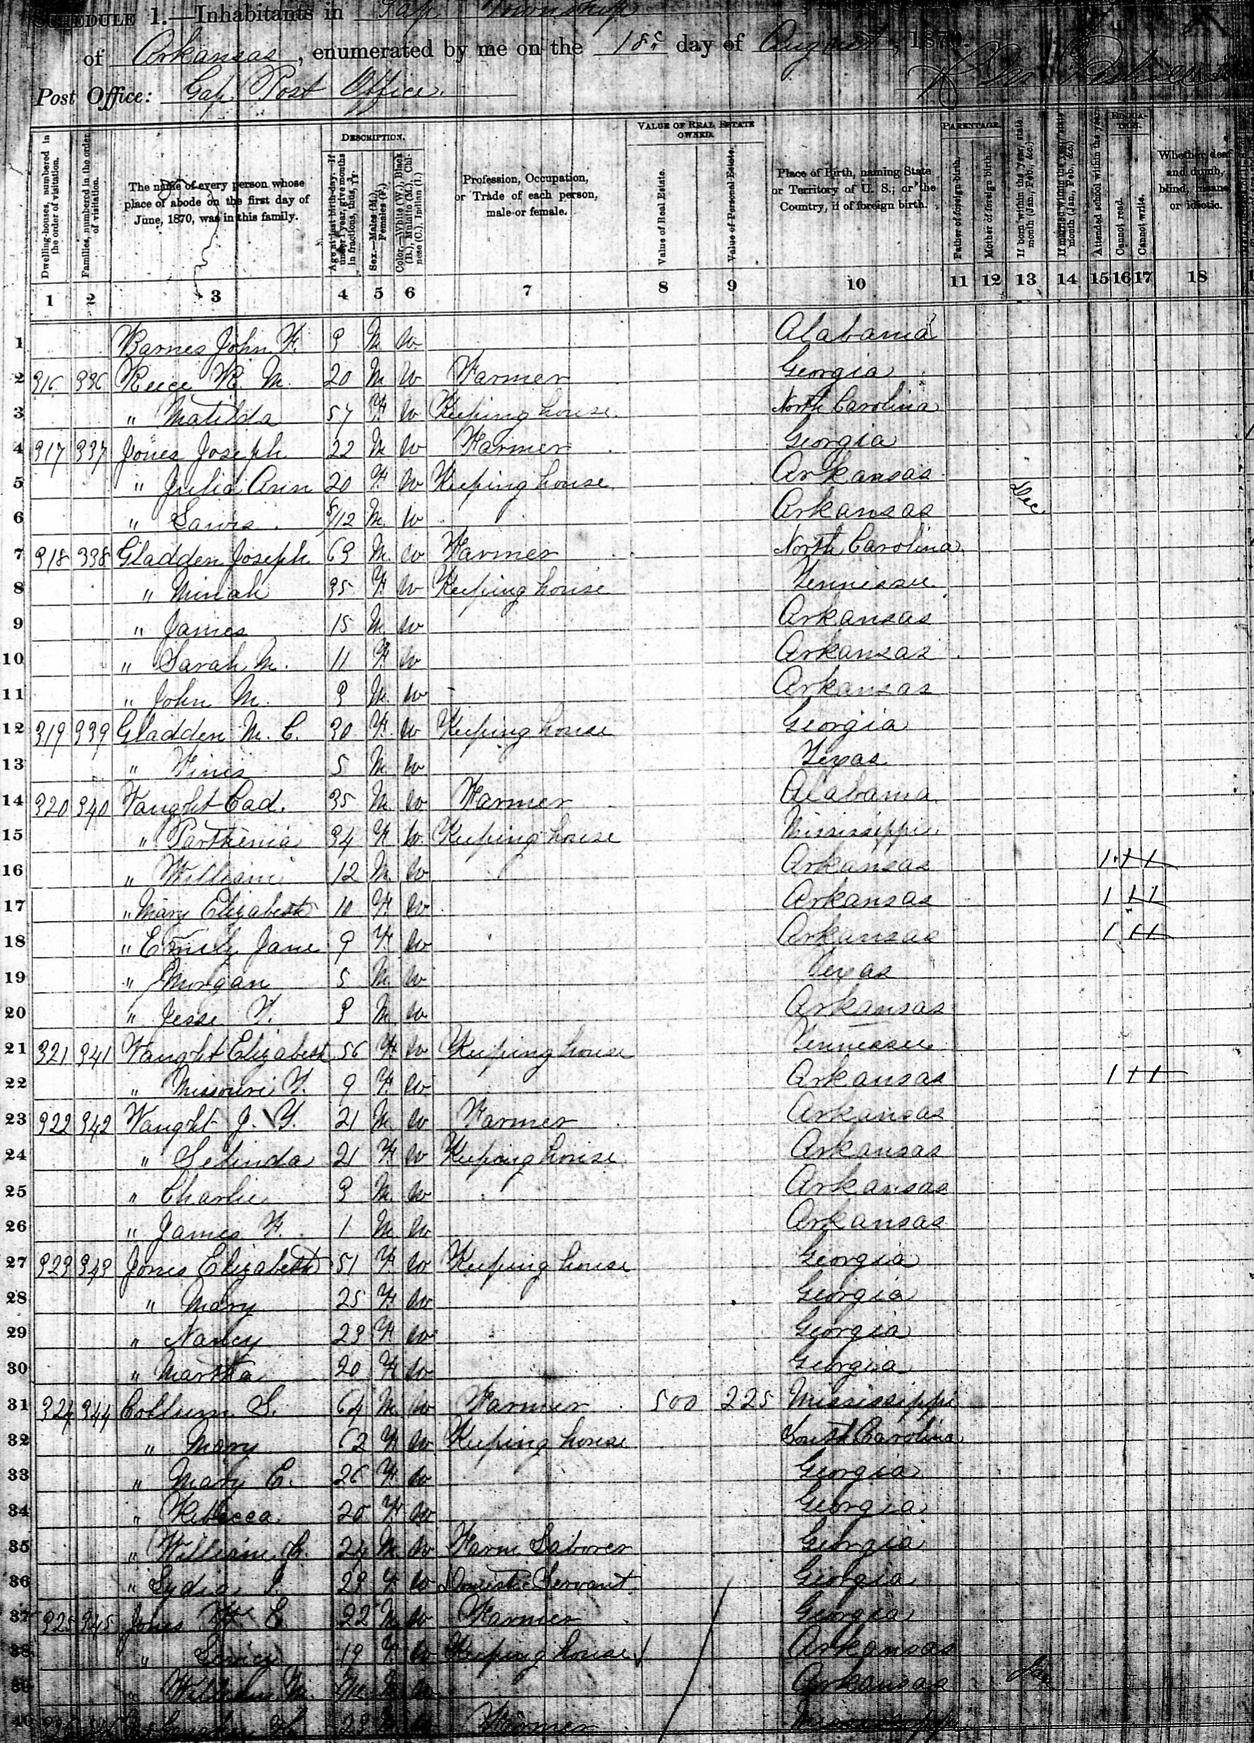 SCHEDULE 1.—Inhabitants in Gap Township
of Arkansas, enumerated by me on the 18 day of August, 1870
Post Office: Gap Post Office.
DESCRIPTION. VALUE OF REAL ESTATE OWNED. PARENTAGE. EDUCATION.
Dwelling-houses, numbered in the order of visitation. Families, numbered in the order of visitation. The name of every person whose place of abode on the first day of June, 1870, was in this family. Age at last birth-day. If under 1 year, give months in fractions, thus, Sex.—Males (M.), Females (F.) Color.—White (W.), Black (B.), Mulatto (M.), Chinese (C.), Indian (I.) Profession, Occupation, or Trade of each person, male or female. Value of Real Estate. Value of Personal Estate. Place of Birth, naming State or Territory of U. S.; or the Country, if of foreign birth. Father of foreign birth. Mother of foreign birth. If born within the year, state month (Jan., Feb., &c.) If married within the year, state month (Jan., Feb., &c.) Attended school within the year. Cannot read. Cannot write. Whether deaf and dumb, blind, insane, or idiotic.
1 2 3 4 5 6 7 8 9 10 11 12 13 14 15 16 17 18
1 Barnes John F. 9 M W Alabama
2 316 336 Reice R. M. 20 M W Farmer Georgia
3 " Matilda 57 F W Keeping house North Carolina
4 317 337 Jones Joseph 22 M W Farmer Georgia
5 " Julia Ann 20 F W Keeping house Arkansas
6 " /12 M W Arkansas Dec
7 318 338 Gladden Joseph 63 M W Farmer North Carolina
8 " Miriah 35 F W Keeping house Tennessee
9 " James 15 M W Arkansas
10 " Sarah M. 11 F W Arkansas
11 " John M. 9 M W Arkansas
12 319 339 Gladden M. C. 30 F W Keeping house Georgia
13 " Finis 5 M W Texas
14 320 340 Vaught Cad. 35 M W Farmer Alabama
15 " Parthenia 34 F W Keeping house Mississippi
16 " William 12 M W Arkansas 1 1 1
17 " Mary Elizabeth 10 F W Arkansas 1 1 1
18 " Emily Jane 9 F W Arkansas 1 1 1
19 " Morgan 5 M W Texas
20 " Jesse T. 3 M W Arkansas
21 321 341 Vaught Elizabeth 56 F W Keeping house Tennessee
22 " Missouri T. 9 F W Arkansas 1 1 1
23 322 342 Vaught J. Y. 21 M W Farmer Arkansas
24 " Selinda 21 F W Keeping house Arkansas
25 " Charlie 3 M W Arkansas
26 " James F. 1 M W Arkansas
27 323 343 Jones Elizabeth 51 F W Keeping house Georgia
28 " Mary 25 F W Georgia
29 " Nancy 23 F W Georgia
30 " Martha 20 F W Georgia
31 324 344 Collum S. 64 M W Farmer 500 225 Mississippi
32 " Mary 62 F W Keeping house South Carolina
33 " Mary E. 26 F W Georgia
34 " Rebecca 20 F W Georgia
35 " William C. 24 M W Farm Laborer Georgia
36 " Lydia 23 F W Domestic Servant Georgia
37 325 345 Jones Wm E 22 M W Farmer Georgia
38 " 19 F W Keeping house Arkansas
39 " William M. M W Arkansas Jan
40 326 346 23 M W Farmer